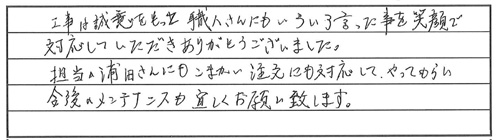 工事は誠意をもって職人さんにもいろいろ言った事を笑顔で
対応していただきありがとうございました。
担当の浦田さんにもこまかい注文にも対応して、やってもらい
今後のメンテナンスも宜しくお願い致します。